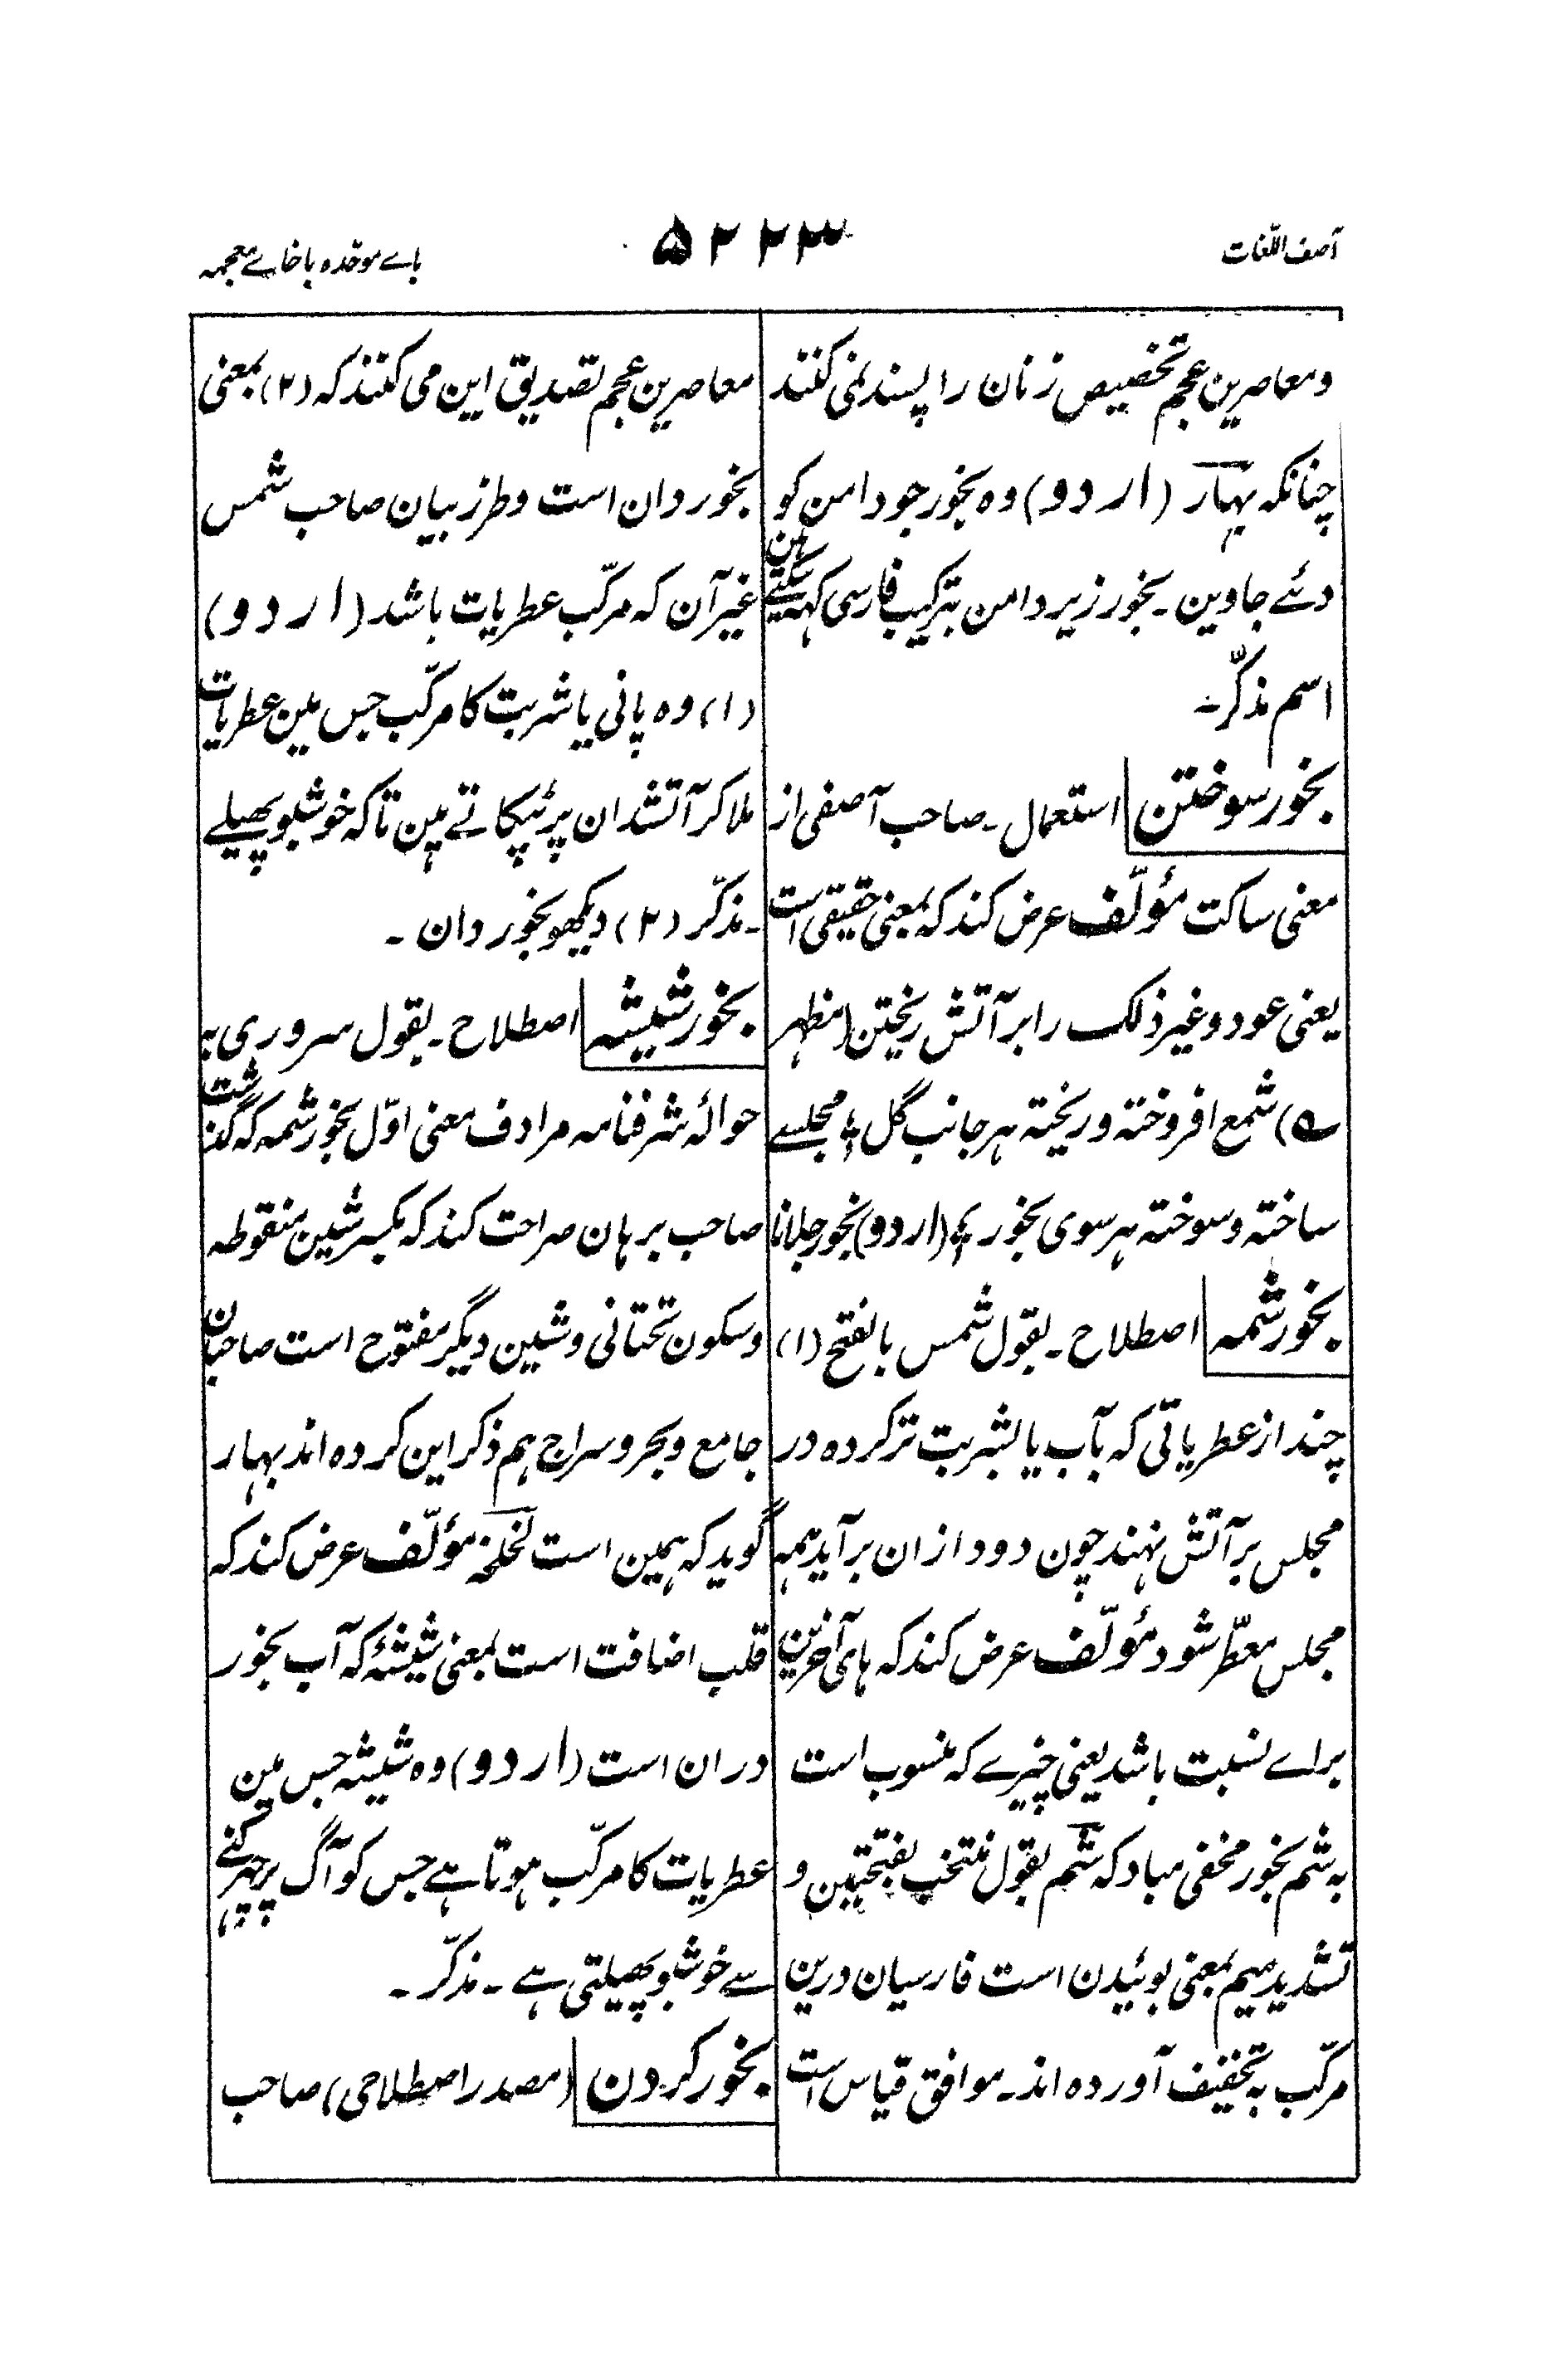 آصف اللّغات
۵۲۲۳
باے موحّدہ با خاے معجمہ
و معاصرین عجم تخصیص زنان را پسند نمی کنند
چنانکہ بہار (اردو) وہ بخور جو دامن کو
دئے جاوین۔ بخور زیر دامن بترکیب فارسی کہہ سکتے ہین
اسم مذکّر۔
بخور سوختن استعمال۔ صاحب آصفی از
معنی ساکت مؤلّف عرض کند کہ بمعنی حقیقی است
یعنی عود و غیر ذلک را بر آتش ریختن (مظہر
ے) شمع افروختہ و ریختہ ہر جانب گل ؛ مجلسے
ساختہ و سوختہ ہر سوی بخور ؛ (اردو) بخور جلانا
بخور شمہ اصطلاح۔ بقول شمس بالفتح (۱)
چند از عطریاتی کہ بآب یا بشربت تر کردہ در
مجلس بر آتش نہند چون دود ازان برآید ہمہ
مجلس معطّر شود مؤلّف عرض کند کہ ہای آخرین
براے نسبت باشد یعنی چیزے کہ منسوب است
بہ شم بخور مخفی مباد کہ شم بقول منتخب بفتحتین و
تشدید میم بمعنی بوئیدن است فارسیان درین
مرکّب بہ تخفیف آوردہ اند۔ موافق قیاس است
معاصرین عجم تصدیق این می کنند کہ (۲) بمعنی
بخور دان است و طرز بیان صاحب شمس
غیر آن کہ مرکّب عطریات باشد (اردو)
(۱) وہ پانی یا شربت کا مرکّب جس مین عطریات
ملا کر آتشدان پر ٹپکاتے ہین تاکہ خوشبو پھیلے
۔ مذکّر (۲) دیکھو بخور دان۔
بخور شیشہ اصطلاح۔ بقول سروری بہ
حوالۂ شرفنامہ مرادف معنی اوّل بخور شمہ کہ گذشت
صاحب برہان صراحت کند کہ بکسر شین منقوطہ
و سکون تحتانی و شین دیگر مفتوح است صاحبان
جامع و بحر و سراج ہم ذکر این کردہ اند بہار
گوید کہ ہمین است لخلخہ مؤلّف عرض کند کہ
قلب اضافت است بمعنی شیشۂ کہ آب بخور
دران است (اردو) وہ شیشہ جس مین
عطریات کا مرکّب ہوتا ہے جس کو آگ پر چھڑکنے
سے خوشبو پھیلتی ہے۔ مذکّر۔
بخور کردن (مصدر اصطلاحی) صاحب